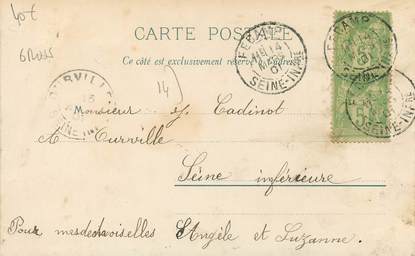 lot
6 Ross
CARTE POSTALE
Ce côté est exclusivement réservé à l'adresse
FÉCAMP
14
MARS
SEINE-INFRE
FÉCAMP
5
OURVILLE
13
SEINE-IN
14)
Monsieur J. Cadinot
à Ourville
Seine inférieure
Pour mesdemoiselles Angèle et Suzanne.